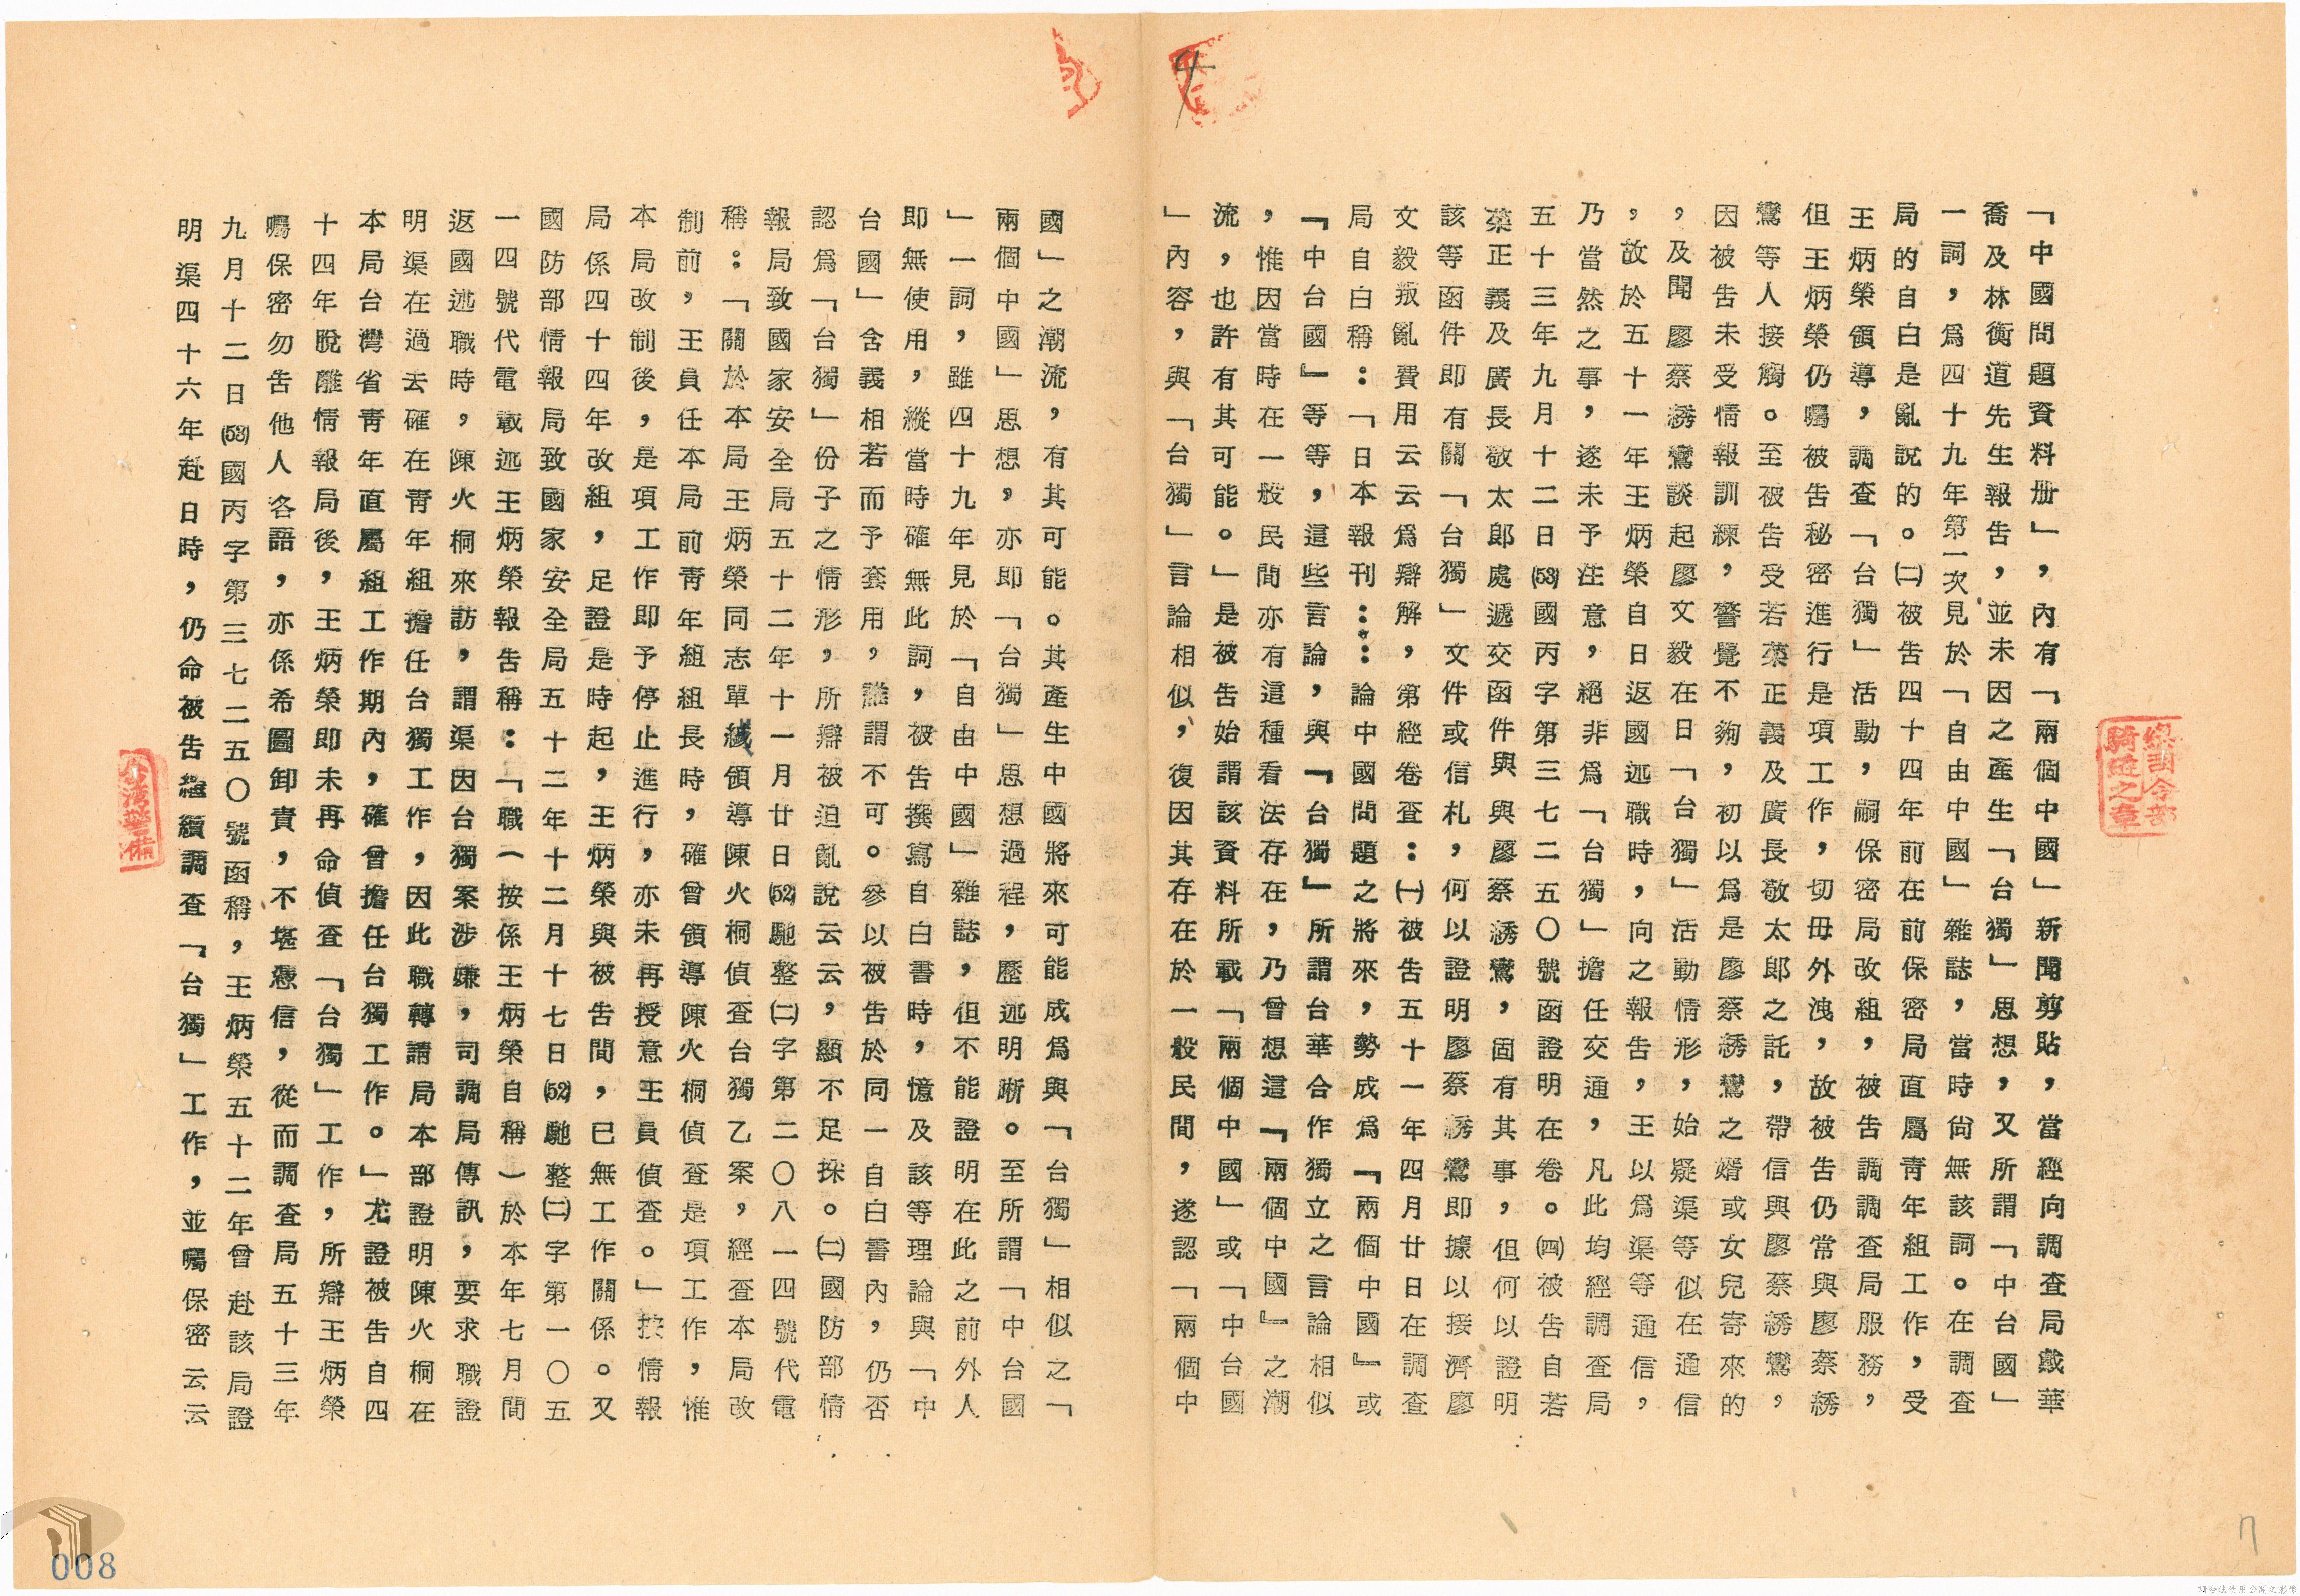 「中國問題資料册」，內有「兩個中國」新聞剪貼，當經向調查局戴華
喬及林衡道先生報告，並未因之產生「台獨」思想，又所謂「中台國」
一詞，爲四十九年第一次見於「自由中國」雜誌，當時尙無該詞。在調查
局的自白是亂說的。㈡被告四十四年前在前保密局直屬靑年組工作，受
王炳榮領導，調查「台獨」活動，嗣保密局改組，被告調調查局服務，
但王炳榮仍囑被告秘密進行是項工作，切毋外洩，故被告仍常與廖蔡綉
鸞等人接觸。至被告受若菜正義及廣長敬太郎之託，帶信與廖蔡綉鸞，
因被告未受情報訓練，警覺不夠，初以爲是廖蔡綉鸞之婿或女兒寄來的
，及聞廖蔡綉鸞談起廖文毅在日「台獨」活動情形，始疑渠等似在通信
，故於五十一年王炳榮自日返國述職時，向之報告，王以爲渠等通信，
乃當然之事，遂未予注意，絕非爲「台獨」擔任交通，凡此均經調查局
五十三年九月十二日(53)國丙字第三七二五〇號函證明在卷。㈣被告自若
菜正義及廣長敬太郎處遞交函件與與廖蔡綉鸞，固有其事，但何以證明
該等函件即有關「台獨」文件或信札，何以證明廖蔡綉鸞即據以接濟廖
文毅叛亂費用云云爲辯解，第經卷查：㈠被告五十一年四月廿日在調查
局自白稱：「日本報刊……論中國問題之將來，勢成爲『兩個中國』或
『中台國』等等，這些言論，與『台獨』所謂台華合作獨立之言論相似
，惟因當時在一般民間亦有這種看法存在，乃曾想這『兩個中國』之潮
流，也許有其可能。」是被告始謂該資料所載「兩個中國」或「中台國
」內容，與「台獨」言論相似，復因其存在於一般民間，遂認「兩個中
國」之潮流，有其可能。其產生中國將來可能成爲與「台獨」相似之「
兩個中國」思想，亦即「台獨」思想過程，歷述明晰。至所謂「中台國
」一詞，雖四十九年見於「自由中國」雜誌，但不能證明在此之前外人
即無使用，縱當時確無此詞，被告撰寫自白書時，憶及該等理論與「中
台國」含義相若而予套用，誰謂不可。參以被告於同一自白書內，仍否
認爲「台獨」份子之情形，所辯被迫亂說云云，顯不足採。㈡國防部情
報局致國家安全局五十二年十一月廿日(52)馳整㈡字第二〇八一四號代電
稱：「關於本局王炳榮同志單線領導陳火桐偵查台獨乙案，經查本局改
制前，王員任本局前靑年組組長時，確曾領導陳火桐偵查是項工作，惟
本局改制後，是項工作即予停止進行，亦未再授意王員偵查。」按情報
局係四十四年改組，足證是時起，王炳榮與被告間，已無工作關係。又
國防部情報局致國家安全局五十二年十二月十七日(52)馳整㈡字第一〇五
一四號代電載述王炳榮報告稱：「職（按係王炳榮自稱）於本年七月間
返國述職時，陳火桐來訪，謂渠因台獨案涉嫌，司調局傳訊，要求職證
明渠在過去確在靑年組擔任台獨工作，因此職轉請局本部證明陳火桐在
本局台灣省靑年直屬組工作期內，確曾擔任台獨工作。」尤證被告自四
十四年脫離情報局後，王炳榮即未再命偵查「台獨」工作，所辯王炳榮
囑保密勿告他人各語，亦係希圖卸責，不堪憑信，從而調查局五十三年
九月十二日(53)國丙字第三七二五〇號函稱，王炳榮五十二年曾赴該局證
明渠四十六年赴日時，仍命被告繼續調查「台獨」工作，並囑保密云云
總司令部
騎縫之章
台灣警備
008
請合法使用公開之影像